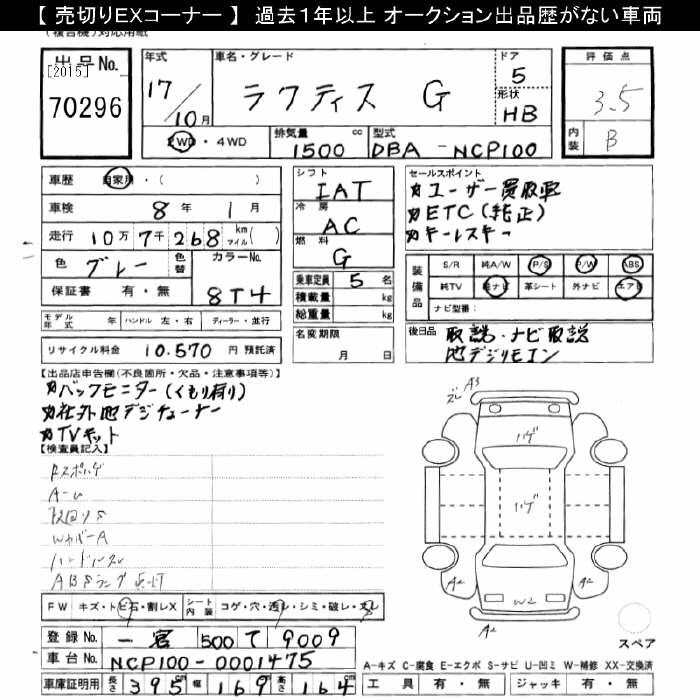 【 売切りEXコーナー 】 過去1年以上 オークション出品歴がない車両
出品No.
[2015]
70296
年式
17/10月
車名・グレード
ラクティス G
ドア
5
形状
HB
評価点
3.5
内装
B
2WD ・ 4WD
排気量
1500 cc
型式
DBA-NCP100
車歴 自家用 ・ ( )
車検 8年 1月
走行 10万7千268 km マイル( )
色 グレー
色替
カラーNo.
8T4
保証書 有・無
シフト
IAT
冷房
AC
燃料
G
乗車定員 5 名
積載量 kg
総重量 kg
名変期限
月 日
セールスポイント
ユーザー買取車
ETC(純正)
キーレスキー
装備品
S/R 純A/W P/S P/W ABS
純TV 純ナビ 革シート 外ナビ エアB
ナビ型番:
後日品
取説・ナビ取説
地デジリモコン
モデル年式 年 ハンドル 左・右 ディーラー・並行
リサイクル料金 10.570 円 預託済
【出品店申告欄(不良箇所・欠品・注意事項等)】
バックモニター(くもり有り)
社外地デジチューナー
TVキット
【検査員記入】
A-U
WカバーA
ABSランプ点灯
FW キズ・トビ石・割レX
シート内装 コゲ・穴・汚レ・シミ・破レ・スレ
登録No. 一宮 500 て 9009
車台No. NCP100-0001475
車庫証明用 長さ 395 cm 幅 169 cm 高さ 164 cm
ズレ
A3
ハゲ
ハゲ
A2
A2
W2
A2
スペア
A-キズ C-腐食 E-エクボ S-サビ U-凹ミ W-補修 XX-交換済
工具 有・無 ジャッキ 有・無